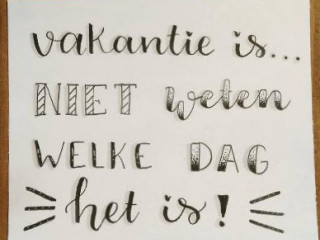 vakantie is...
NIET weten
WELKE DAG
het is!